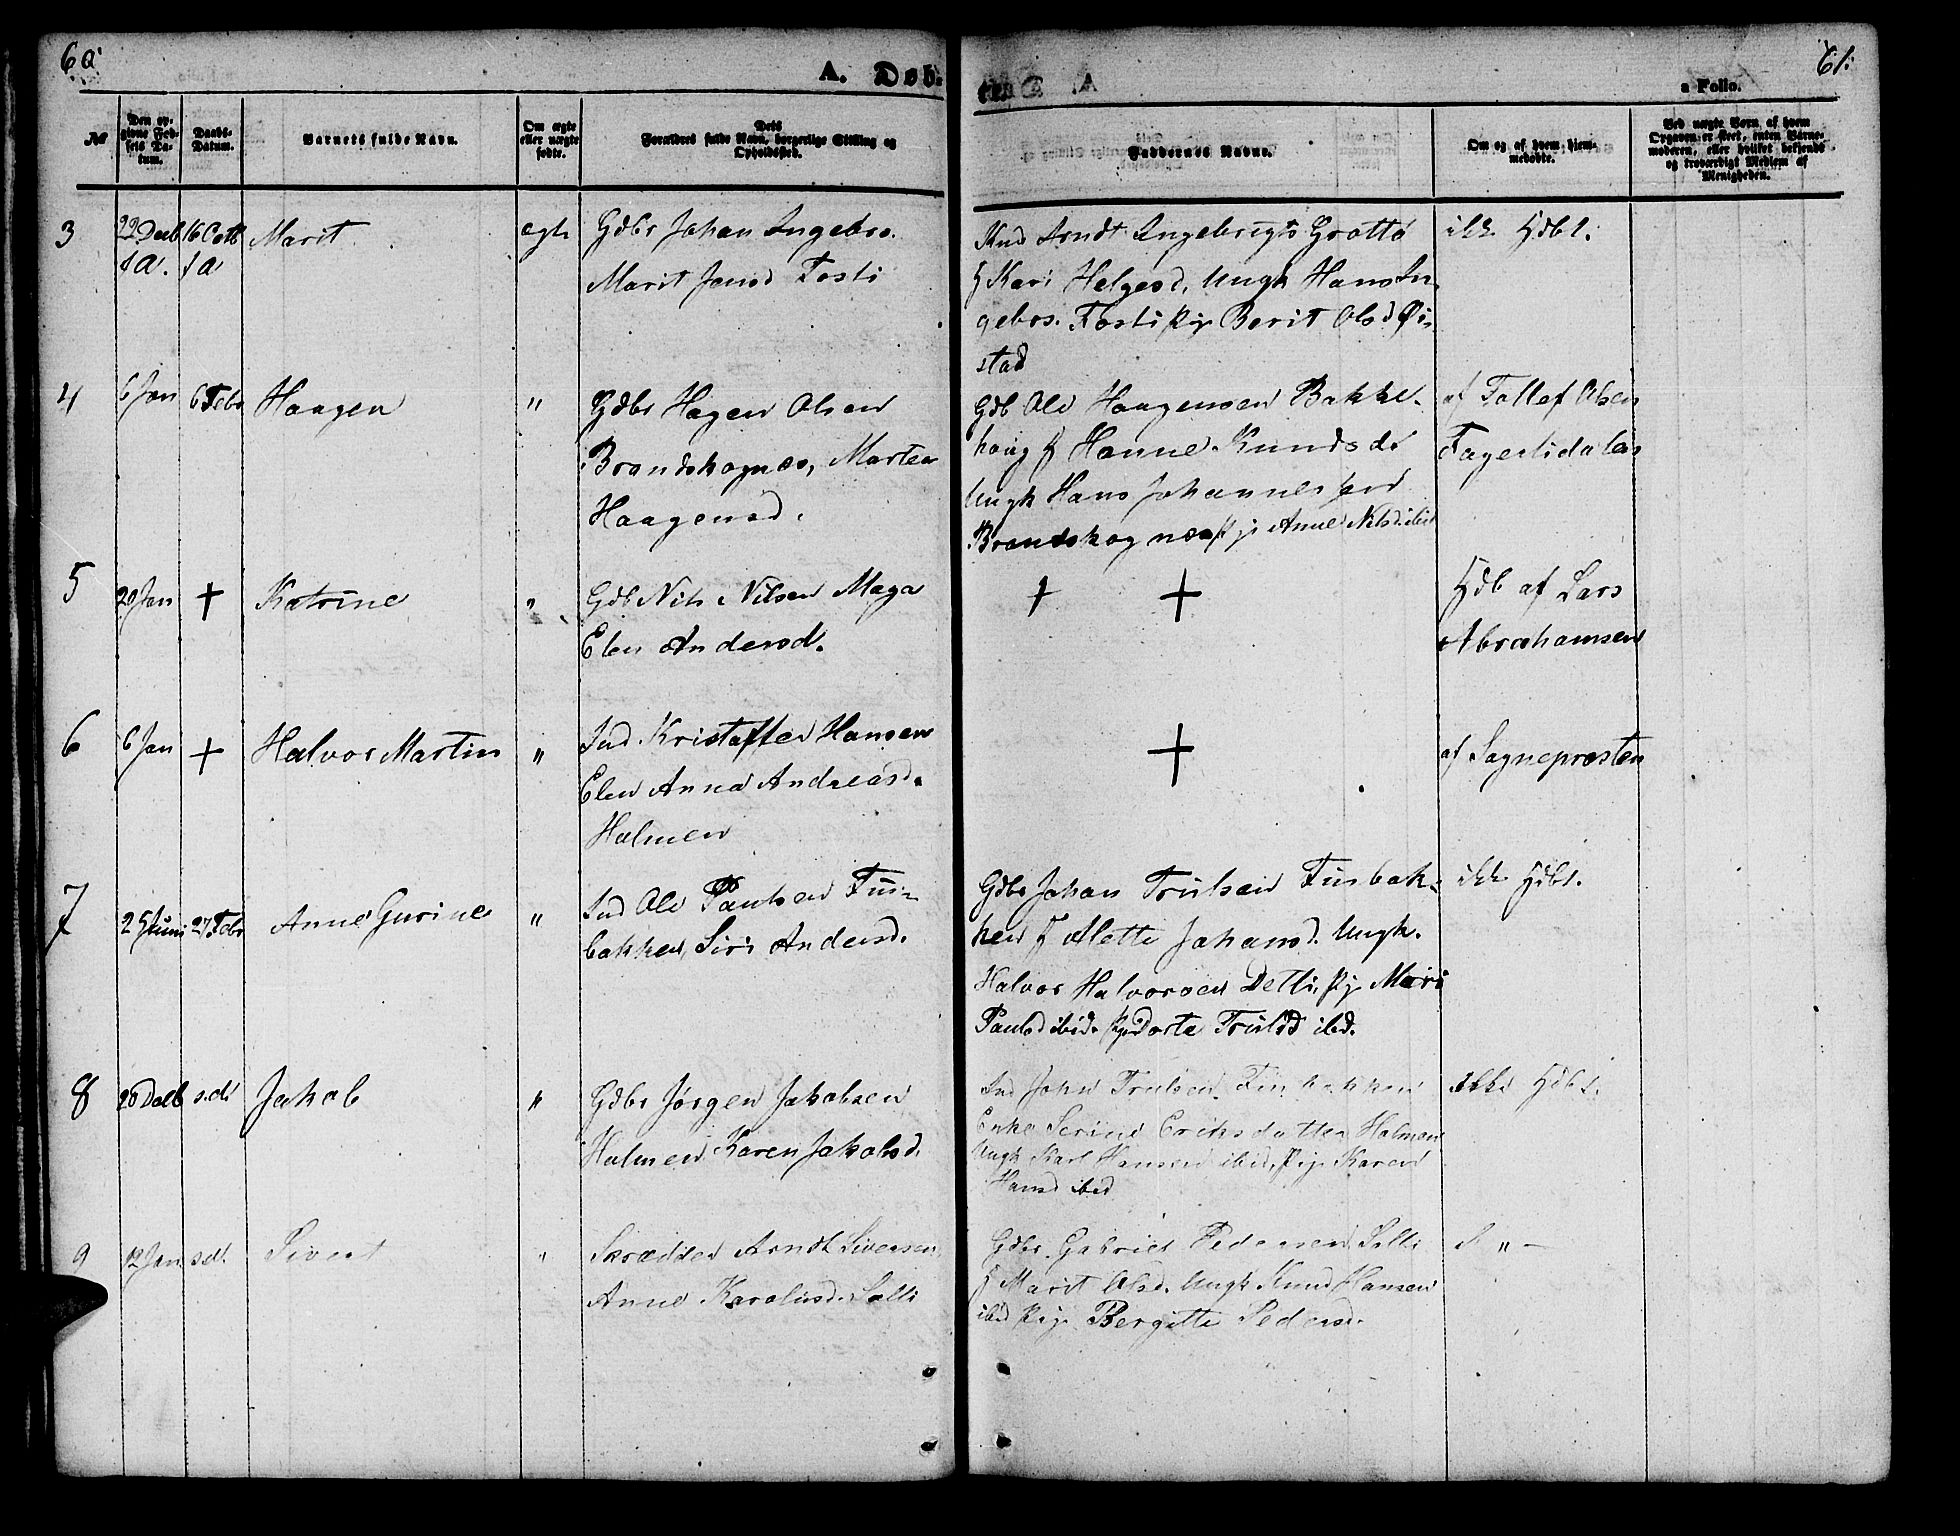 60
61.
A. Døb-
a Folio.
№
Den op-
givne Fød-
sels Da-
tum.
Daabs-
Datum.
Barnets fulde Navn.
Om ægte
eller uægte
fødte.
Dets
Forældres fulde Navn, borgerlige Stilling og
Opholdssted.
Faddernes Navne.
Om og af hvem hjem-
medøbte.
Ved uægte Børn af hvem
Opgaven er skeet, enten Barne-
moderen, eller hvilket bekjendt
og troværdigt Medlem af
Menigheden.
3
22 Decb
f A.
16 Octb
f A
Marit
ægte
Gdbr Johan Ingebr.
Marit Jensd Fosti
Arndt Ingebrigts Grøttø
Kari Helgesd. Ungk Hans In-
gebrs. Fosti Pig Berit Olsd Øi-
stad
ikk Hdbt.
4
6 Jan
6 Febr
Haagen
"
Gdbr Hagen Olsen
Brandskognæs, Marten
Haagensd.
Gdb Ole Haagensen Bakke-
houg f Hanne Knudsd
Ungk Hans Johannessen
Brandskognæs Pige Anne Nilsd ibid
af Tollef Olsen
Fagerlidalen
5
20 Jan
+
Katrine
"
Gdb Nils Nilsen Moga
Elen Andersd.
+ +
Hdb af Lars
Abrahamsen
6
6 Jan
+
Halvor Martin
"
Ind Kristoffer Hansen
Elen Anna Andreasd.
Holmen
+
af Sognepresten
7
25 Juni
27 Febr
Anne Gurine
"
Ind Ole Paulsen Fin-
bakken, Siri Andersd.
Gdbr Johan Trulsen Finbak-
ken f Mette Johansd. Ungk.
Halvor Halvorsen Detli, Pig Mari
Paulsd ibid. Pig Dorte Trulsd ibd.
ikk Hdbt.
8
20 Decb
s.d.
Jakob
"
Gdbr Jørgen Jakobsen
Holmen Karen Jakobsd.
Ind John Trulsen Finbakken
Enke Serine Eriksdatter Holmen
Ungk Karl Hansen ibid, Pige Karen
Hansd ibid
ikke Hdbt.
9
12 Jan
s.d.
Sivert
"
Skrædder Arndt Siversen
Anne Karolusd. Solli
Gdbr. Gabriel Pedersen Solli
f Marit Olsd. Ungk Knud Hansen
ibid Pige Bergitte Pedersd.
" —